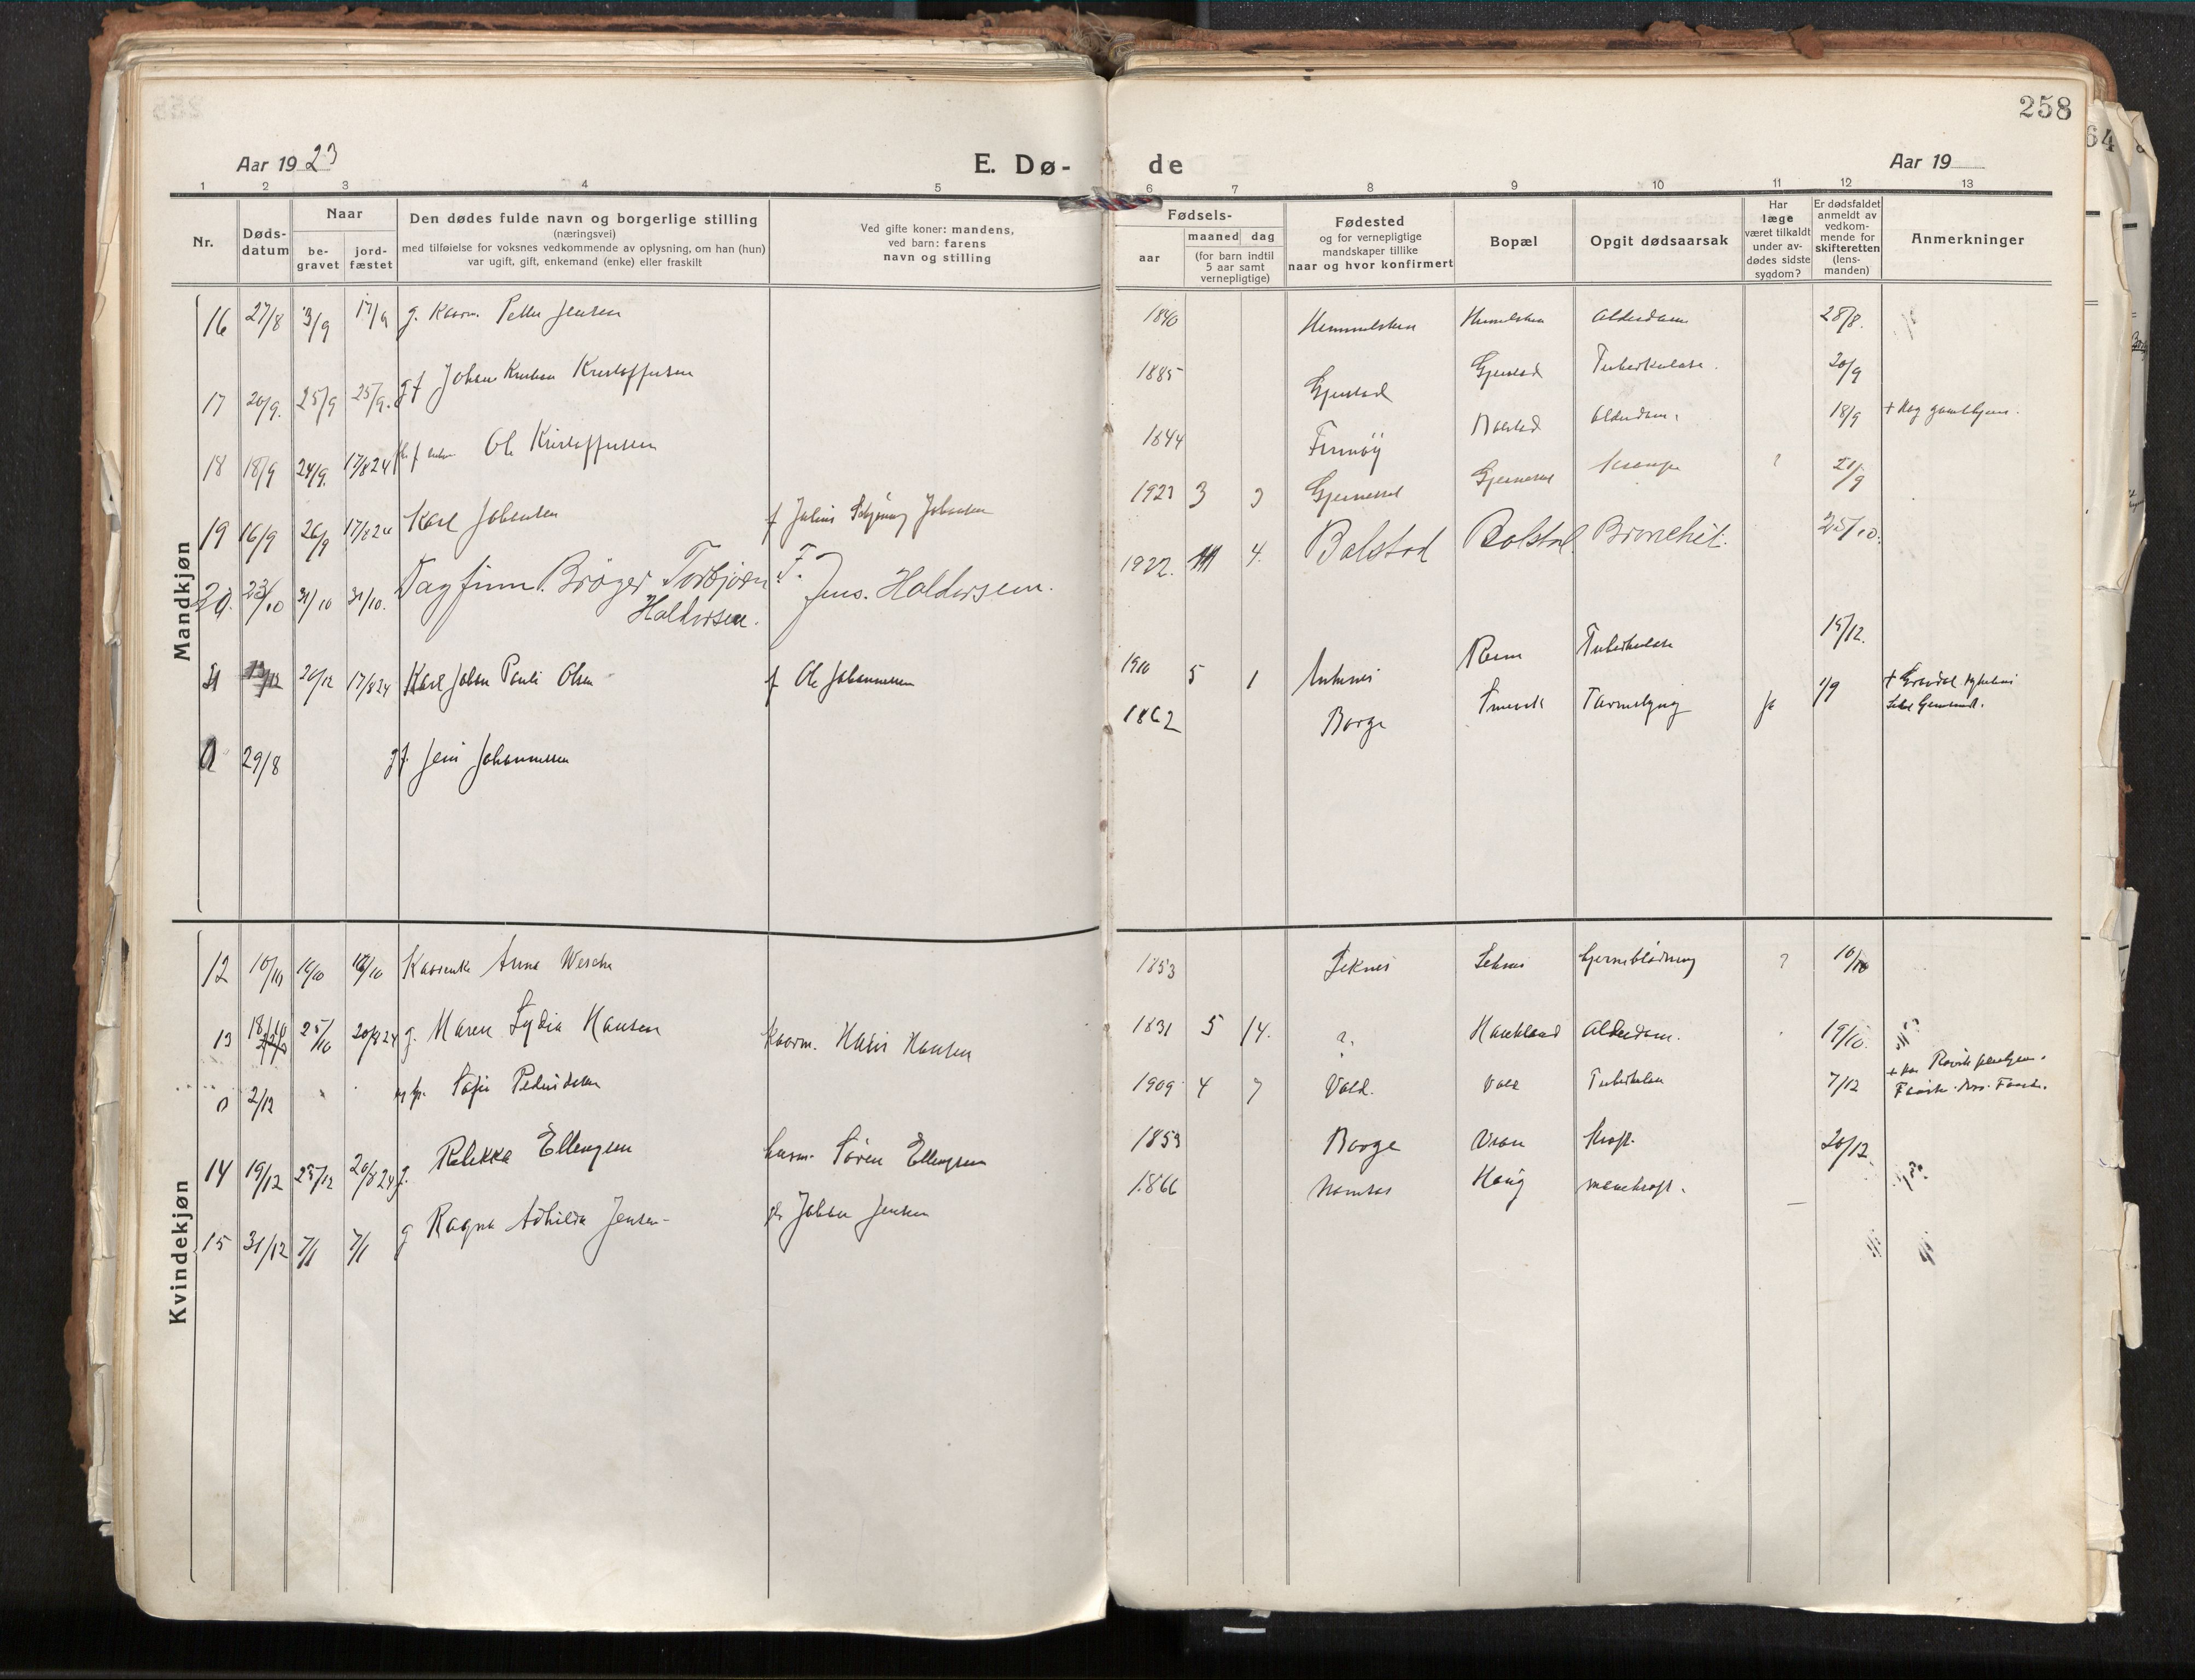 258
Aar 1923
E. Dø-
de
Aar 19
1 2 3 4 5 6 7 8 9 10 11 12 13
Nr.
Døds-
datum
Naar
be-
gravet
jord-
fæstet
Den dødes fulde navn og borgerlige stilling
(næringsvei)
med tilføielse for voksnes vedkommende av oplysning, om han (hun)
var ugift, gift, enkemand (enke) eller fraskilt
Ved gifte koner: mandens,
ved barn: farens
navn og stilling
Fødsels-
aar
maaned dag
(for barn indtil
5 aar samt
vernepligtige)
Fødested
og for vernepligtige
mandskaper tillike
naar og hvor konfirmert
Bopæl
Opgit dødsaarsak
Har
læge
været tilkaldt
under av-
dødes sidste
sygdom?
Er dødsfaldet
anmeldt av
vedkom-
mende for
skifteretten
(lens-
manden)
Anmerkninger
Mandkjøn
16 27/8 3/9 17/9 g. Kaarm. Peder Jensen 1840 Alderdom 28/8.
17 20/9. 25/9 25/9. gf Johan Kristoffersen 1885 Gjerstad Gjerstad Tuberkulose. 20/9
18 18/9 24/9. 17/8 24 Ole Kristoffersen 1844 Bolstad Alderdom. 18/9
19 16/9 26/9 17/8 24 Karl Johansen f Julius Johansen 1923 3 3 ? 21/9
20. 23/10 31/10 31/10. Dagfinn. Brøger Torbjørn Haldorsen. F. Jens. Haldorsen. 1922. 4. Bolstad Bolstad. Bronchit. 25/10.
21 20/12 17/8 24 Karl Johan Pauli Olsen f Ole Johannessen 1910 5 1 Ramn Tuberkulose 15/12.
0 29/8 gf. Jens Johannessen 1862 Borge Tarmslyng ja 1/9 + Gravdal sykehus
Kvindekjøn
12 10/10 16/10 Kaarenke Anna Wesche 1853 Leknes Leknes Hjerneblødning ? 10/10
13 18/10 25/10 20/8 24 g. Maren Lydia Hansen Kaarm. Hans Hansen 1831 5 14. ?. Haukland Alderdom. 19/10.
0 2/12 Sofie Pedersen 1909 4 7 Vold. Vold Tuberkulose 7/12
14 19/12 20/8 24 g. Rebekka Ellingsen Søren Ellingsen 1853 Borge Kræft. 20/12
15 31/12 7/1 7/1 g Ragna Jensen Johan Jensen 1866 Namsos Haug mavekræft.